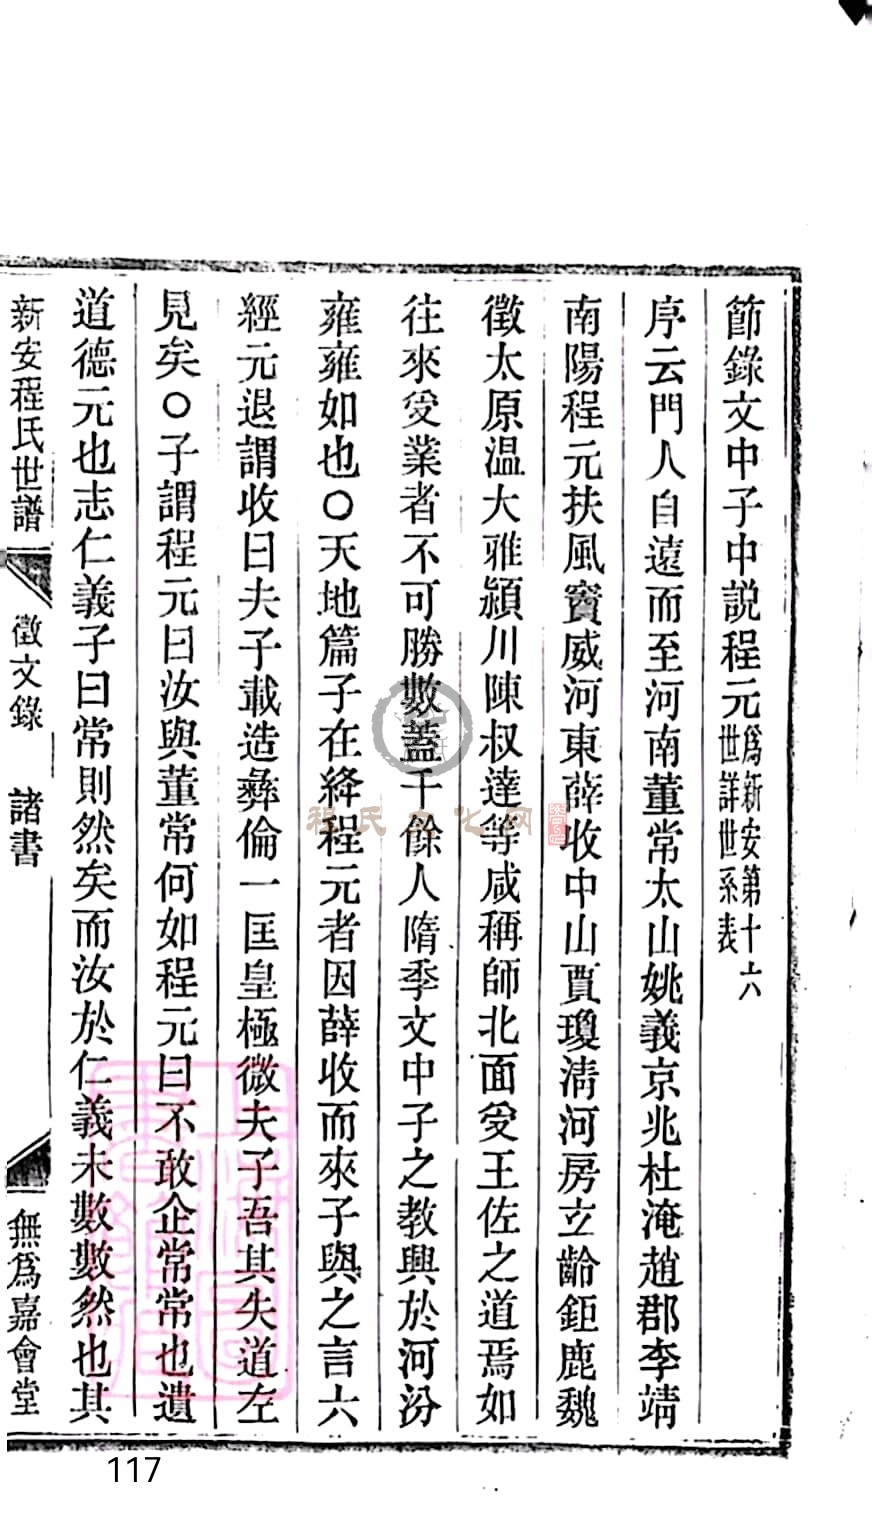 節錄文中子中說程元爲新安第十六世詳世系表
序云門人自遠而至河南董常太山姚義京兆杜淹趙郡李靖
南陽程元扶風竇威河東薛收中山賈瓊淸河房立齡鉅鹿魏
徵太原温大雅潁川陳叔達等咸稱師北面受王佐之道焉如
往來受業者不可勝數蓋千餘人隋季文中子之教興於河汾
雍雍如也○天地篇子在絳程元者因薛收而來子與之言六
經元退謂收曰夫子載造彝倫一匡皇極微夫子吾其失道左
見矣○子謂程元曰汝與董常何如程元曰不敢企常常也遺
道德元也志仁義子曰常則然矣而汝於仁義未數數然也其
新安程氏世譜 徵文錄 諸書 無爲嘉會堂
程氏文化网
117